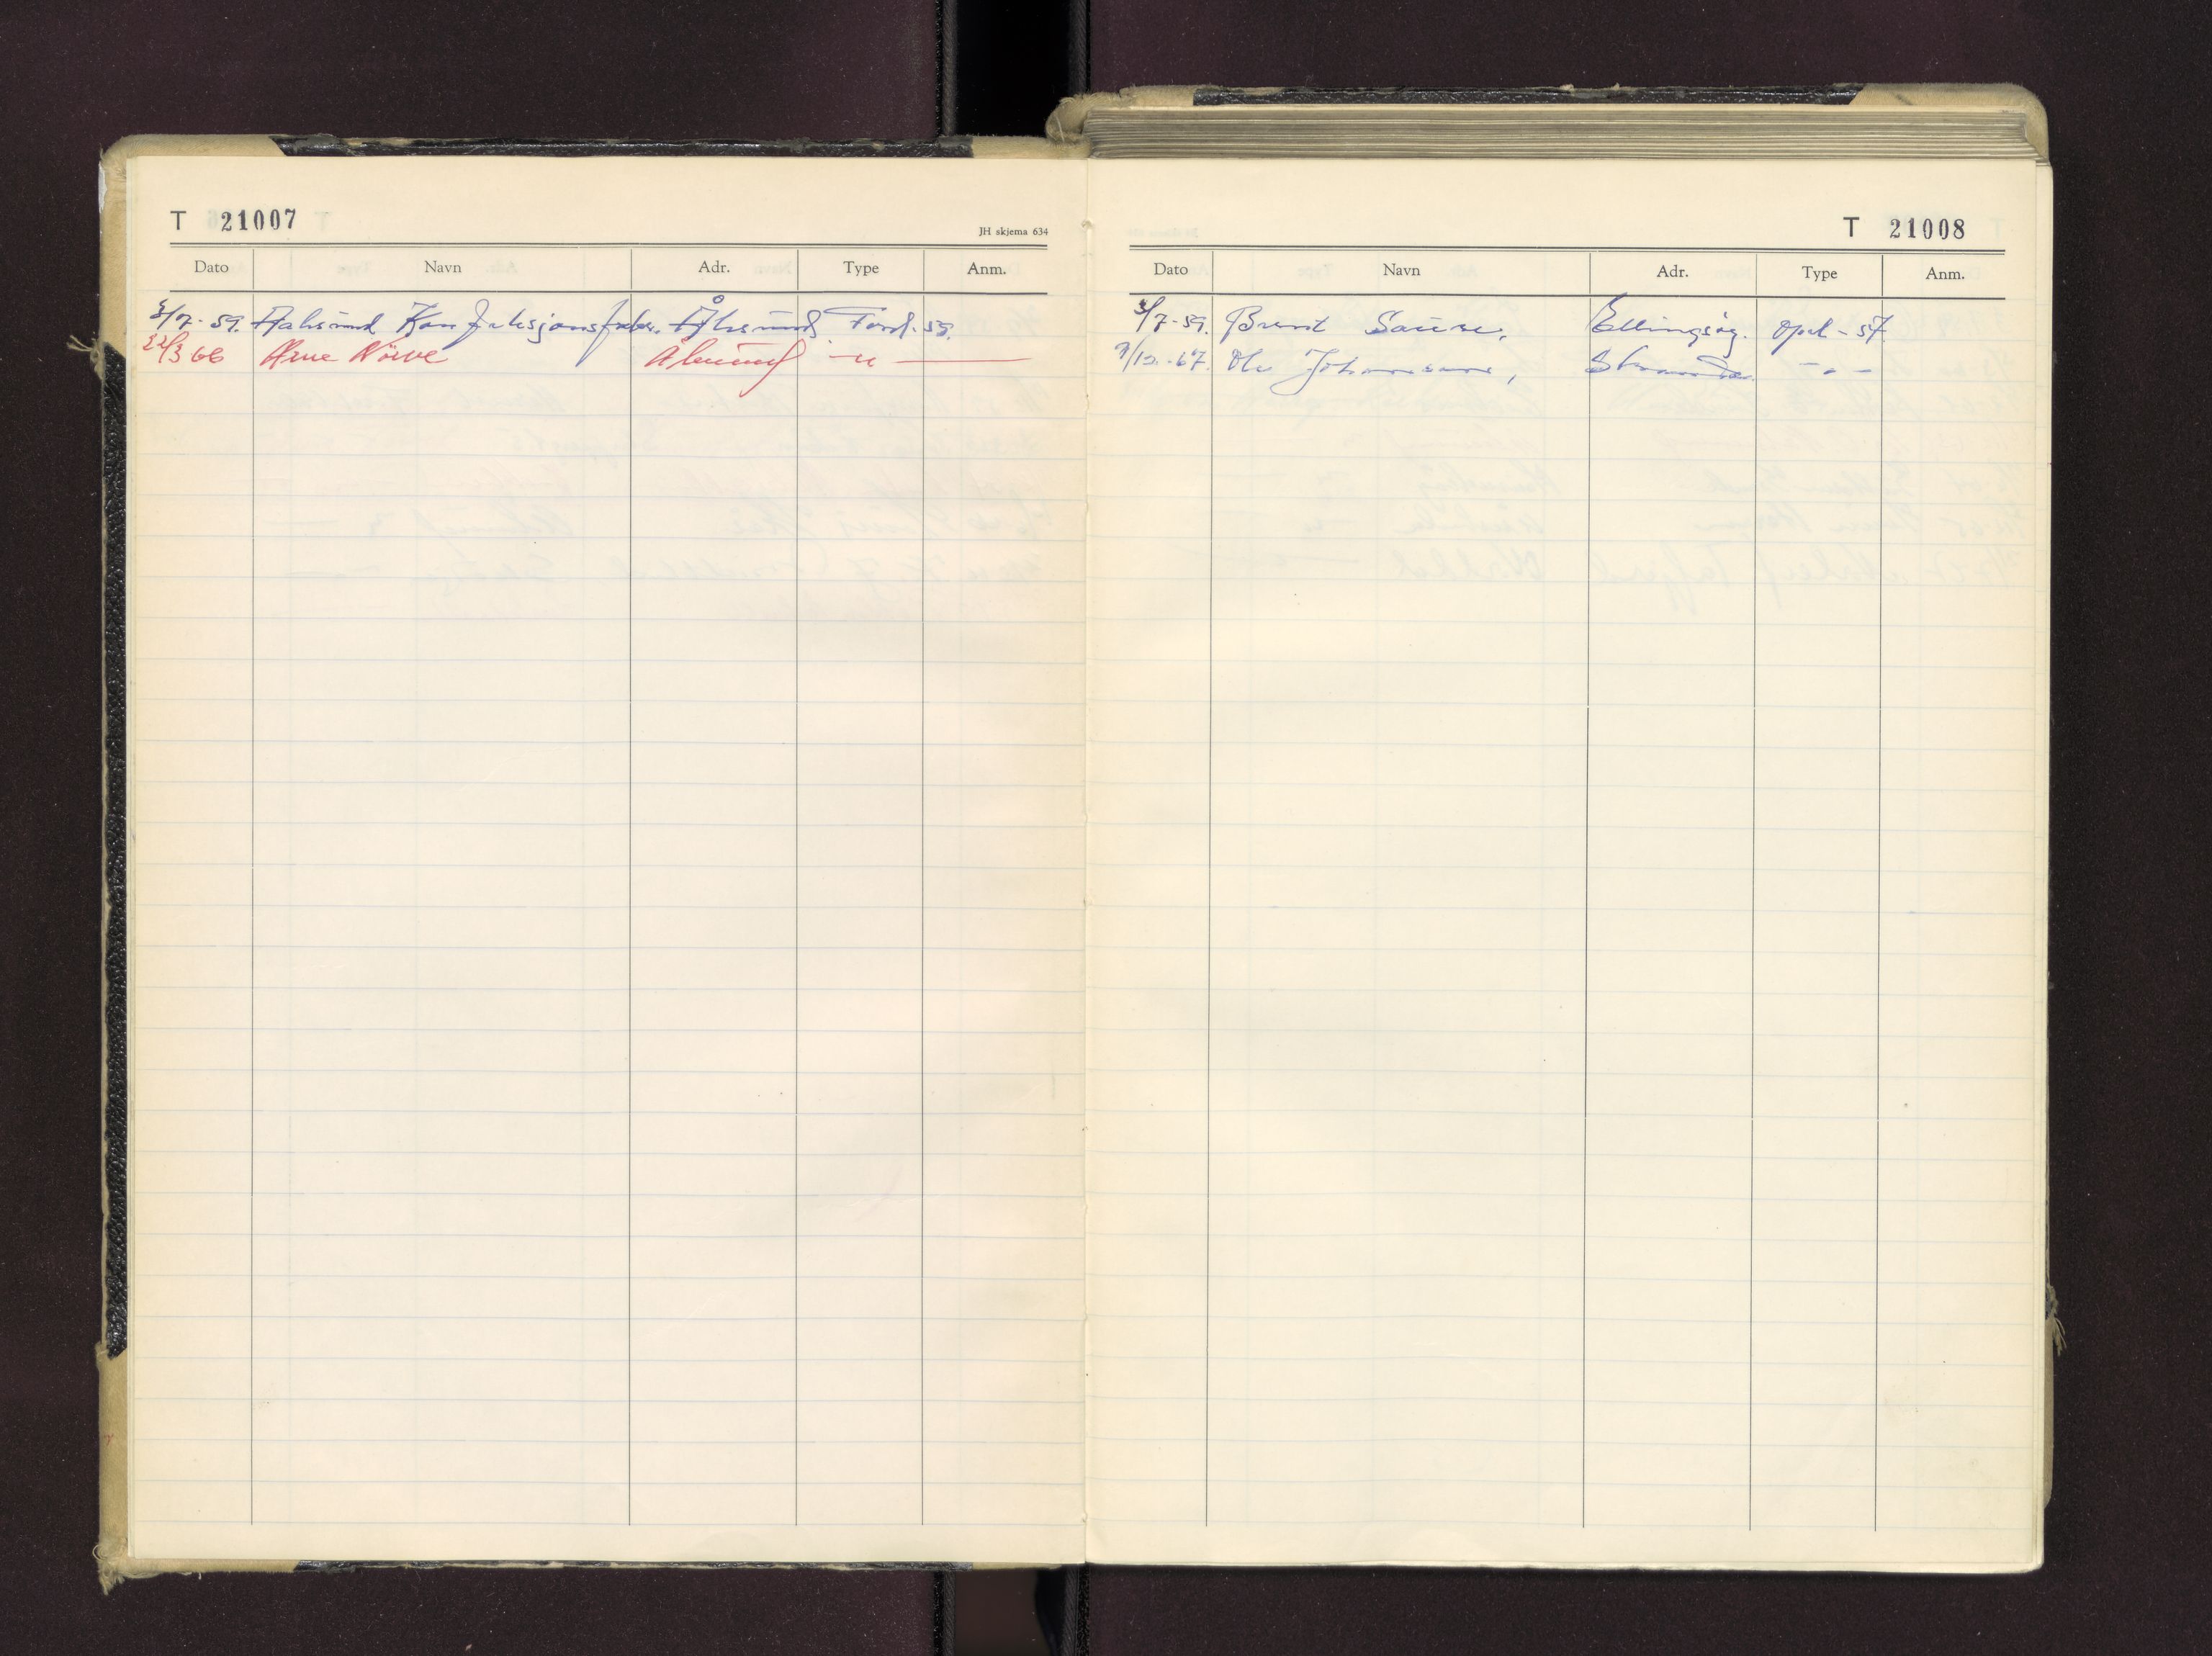 T 21007
JH skjema 634
Dato Navn Adr. Type Anm.
3/7-59. Aalesund Konfeksjonsfabr. Ålesund Ford. 59.
22/3 66 Arne Nörve Ålesund —"—
T 21008
Dato Navn Adr. Type Anm.
3/7-59. Bernt Ellingsöy. Opel - 57.
/12.-67. Ole Johansen, Stranda. -"-